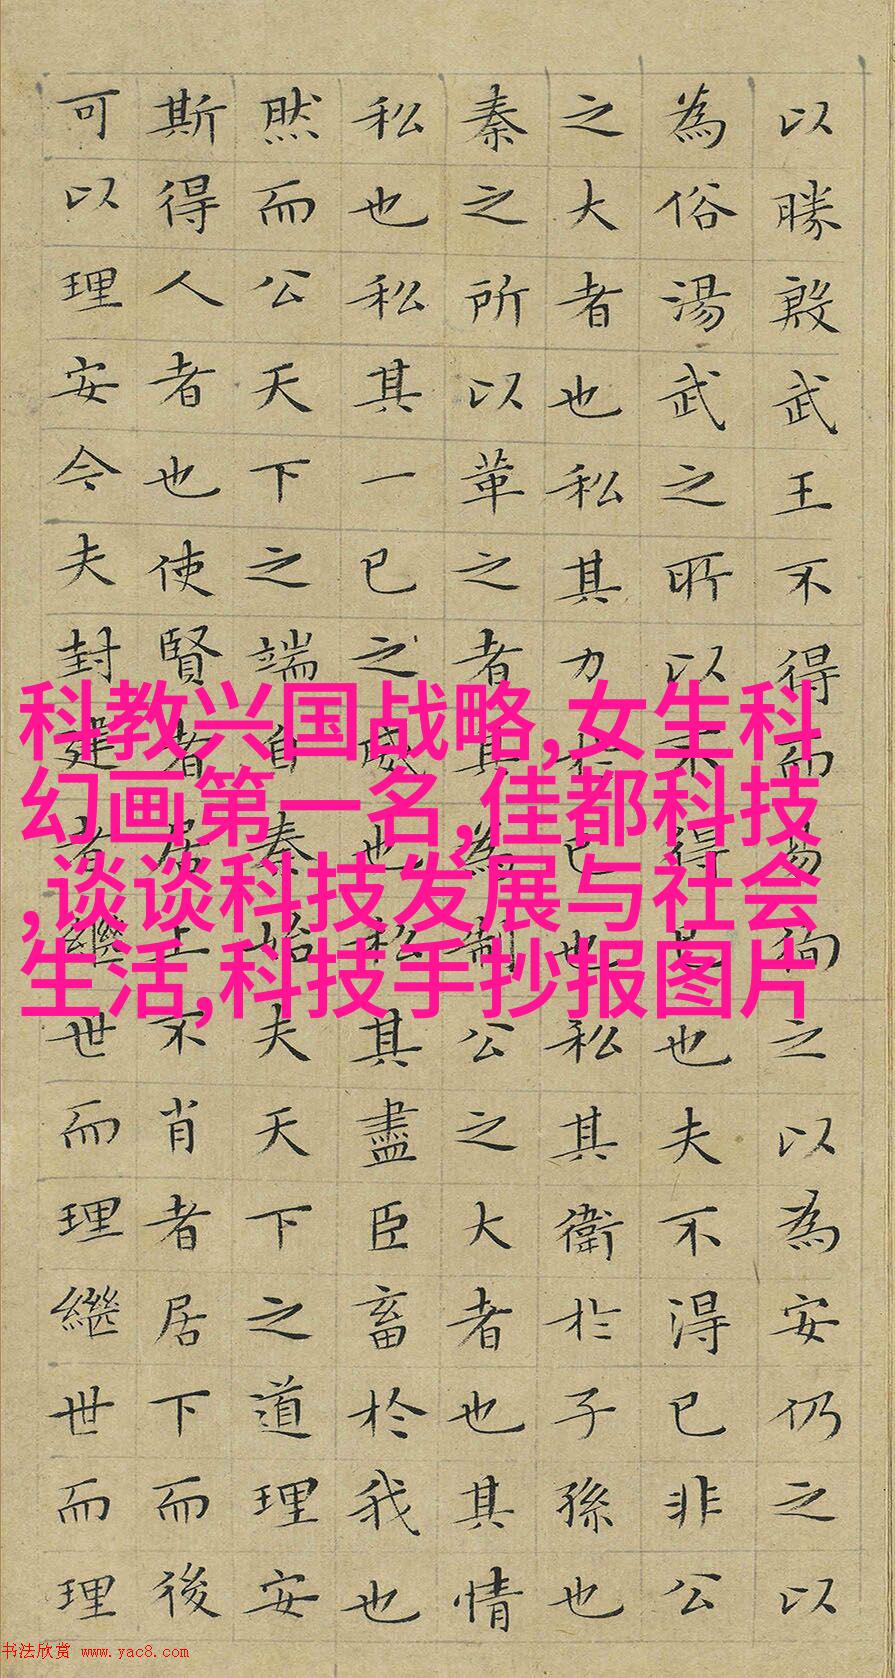 以勝殷武王不得而易徇之以為安仍之以
為俗湯武之所以不得已也夫不得已非公
之大者也私其力於已也私其衛於子孫也
秦之所以革之者其為制公之大者也其情
私也私其一已之威也私其盡臣畜於我也
然而公天下之端自秦始夫天下之道理安
斯得人者也使賢者居上不肖者居下而後
可以理安今夫封建者繼世而理繼世而理
科教兴国战略,女生科
幻画第一名,佳都科技
,谈谈科技发展与社会
生活,科技手抄报图片
书法欣赏 www.yac8.com